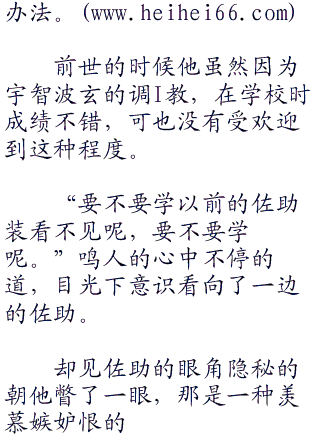 办法。(www.heihei66.com)
前世的时候他虽然因为
宇智波玄的调I教，在学校时
成绩不错，可也没有受欢迎
到这种程度。
“要不要学以前的佐助
装看不见呢，要不要学
呢。”鸣人的心中不停的
道，目光下意识看向了一边
的佐助。
却见佐助的眼角隐秘的
朝他瞥了一眼，那是一种羡
慕嫉妒恨的